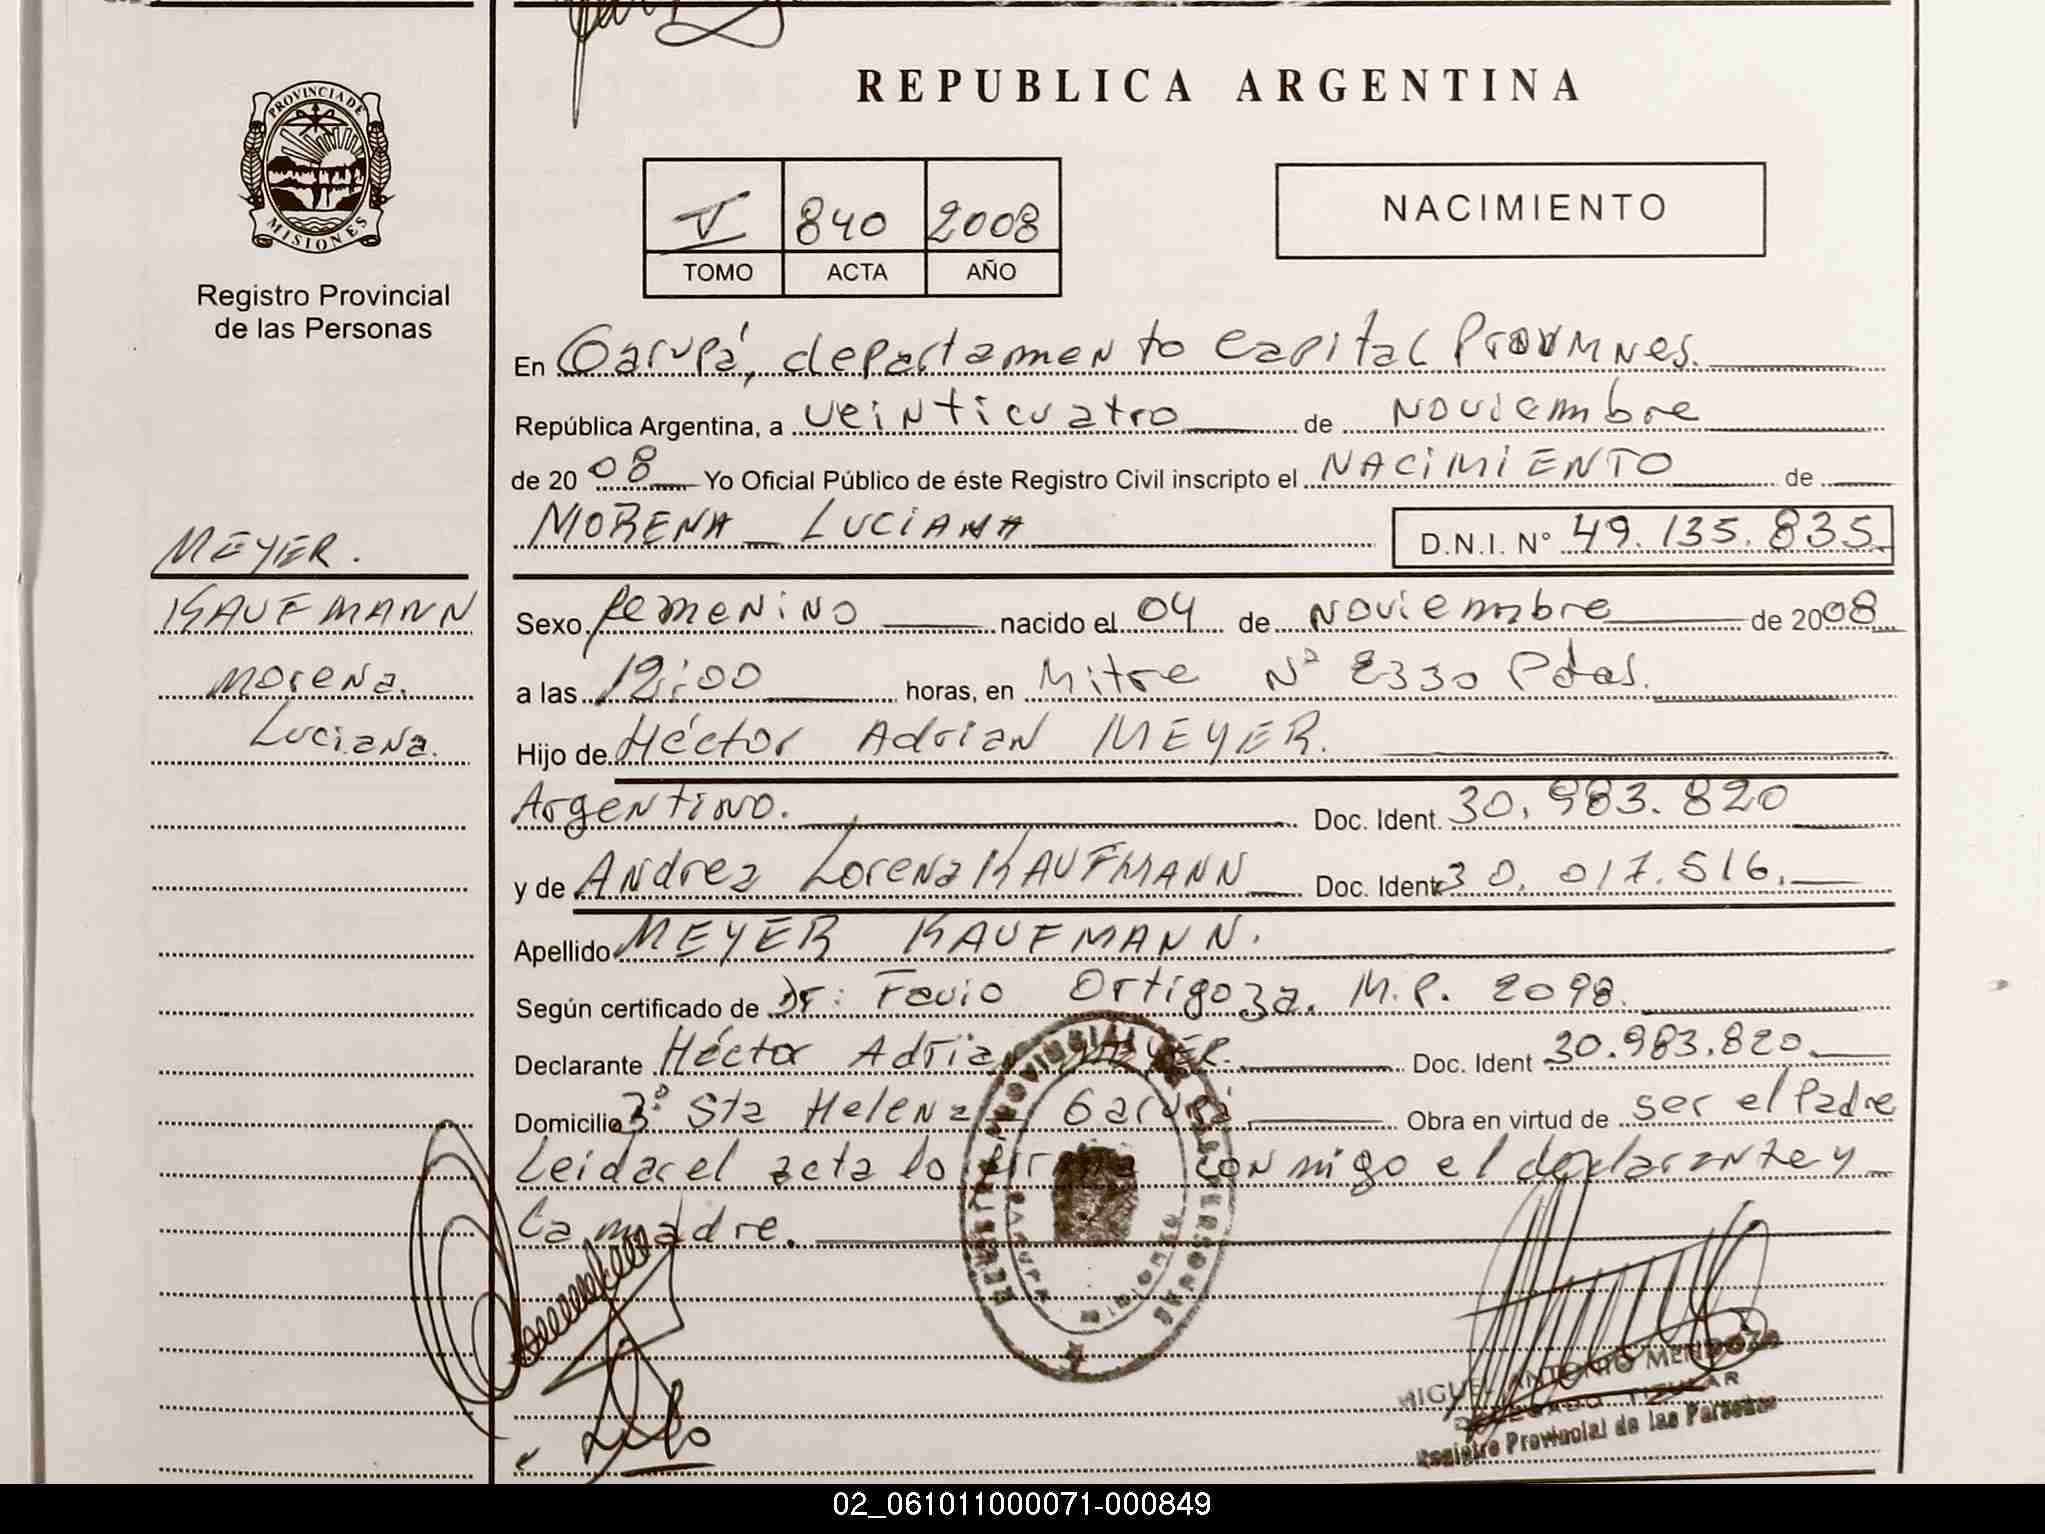 REPUBLICA ARGENTINA
PROVINCIA DE
MISIONES
Registro Provincial
de las Personas
V 840 2008
TOMO ACTA AÑO
NACIMIENTO
En Garupá, departamento Capital Prov Mnes.
República Argentina, a veinticuatro de noviembre
de 2008 Yo Oficial Público de éste Registro Civil inscripto el NACIMIENTO de
MORENA LUCIANA D.N.I. N° 49.135.835
MEYER.
KAUFMANN
Morena.
Luciana.
Sexo femenino nacido el 04 de noviembre de 2008
a las 12:00 horas, en Mitre Nº 2330 Pdas.
Hijo de Héctor Adrian MEYER.
Argentino. Doc. Ident. 30.983.820
y de Andrea Lorena KAUFMANN Doc. Ident. 30.017.516.
Apellido MEYER KAUFMANN.
Según certificado de Dr: Favio Ortigoza. M.P. 2098.
Declarante Héctor Adrian MEYER. Doc. Ident 30.983.820.
Domicilio Bº Sta Helena Garupá Obra en virtud de ser el Padre
Leida el acta lo firma conmigo el declarante y
La madre.
REGISTRO PROVINCIAL DE LAS PERSONAS
GARUPA MISIONES
MIGUEL ANTONIO MENDOZA
DELEGADO TITULAR
Registro Provincial de las Personas
02_061011000071-000849